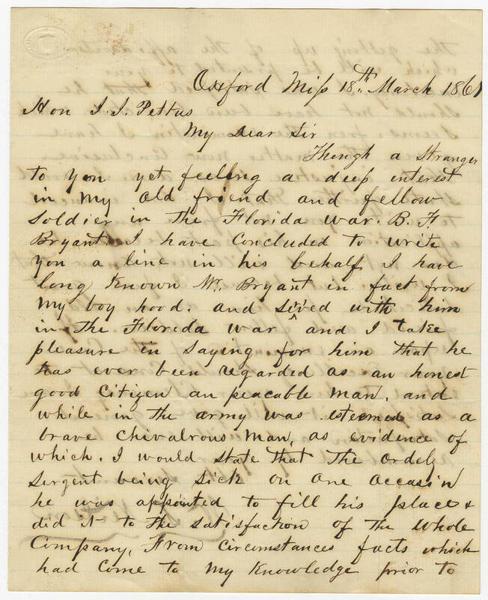 Oxford Miss 18th March 1861
Hon J. J. Pettus
My Dear Sir
Though a Stranger
to you yet feeling a deep interest
in my old friend and fellow
Soldier in the Florida War. B. F.
Bryant I have concluded to write
you a line in his behalf, I have
long known Mr. Bryant in fact from
my boy hood. and sived with him
in the Florida War and I take
pleasure in saying for him that he
has ever been regarded as an honest
good Citizen an peacable man, and
while in the army was esteemed as a
brave chivalrous man, as evidence of
which. I would state that the ordely
Sergent being sick on one occasin
he was appointed to fill his place &
did it to the satisfaction of the whole
Company, From circumstances facts which
had come to my knowledge prior to